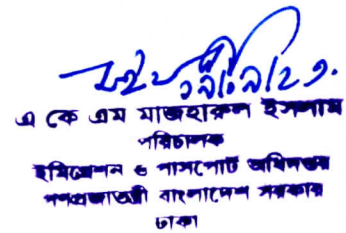 এ কে এম মাজহারুল ইসলাম
পরিচালক
ইমিগ্রেশন ও পাসপোর্ট অধিদপ্তর
গণপ্রজাতন্ত্রী বাংলাদেশ সরকার
ঢাকা